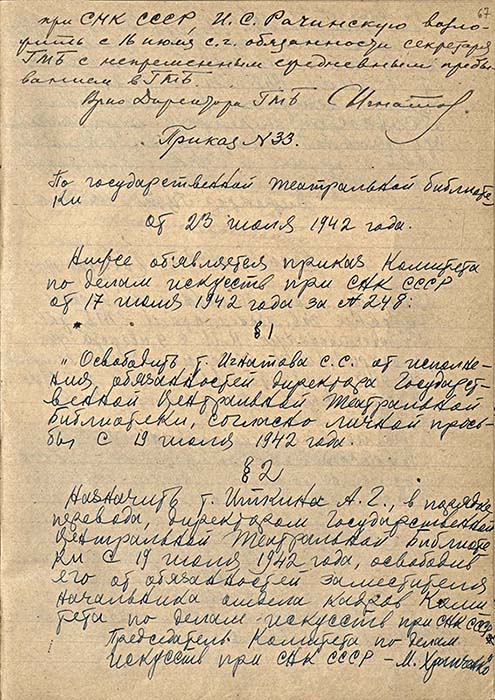 67
при СНК СССР, И.С. Рачинскую возло-
жить с 16 июля с.г. обязанности секретаря
ГТБ с непременным ежедневным пребы-
ванием в ГТБ.
Врио Директора ГТБ Игнатов
Приказ N 33.
По государственной театральной библиоте
ки
от 23 июля 1942 года.
Ниже объявляется приказ Комитета
по делам искусств при СНК СССР
от 17 июля 1942 года за № 248:
§ 1
„Освободить т. Игнатова С.С. от исполне-
ния обязанностей директора Государст-
венной Центральной Театральной
Библиотеки, согласно личной прось-
бы с 19 июля 1942 года.
§ 2
Назначить т. Иткина А.Г., в порядке
перевода, директором Государственной
Центральной Театральной Библиоте
ки с 19 июля 1942 года, освободив
его от обязанностей заместителя
начальника отдела кадров Коми
тета по делам искусств при СНК СССР
Председатель Комитета по делам
искусств при СНК СССР – М. Храпченко"